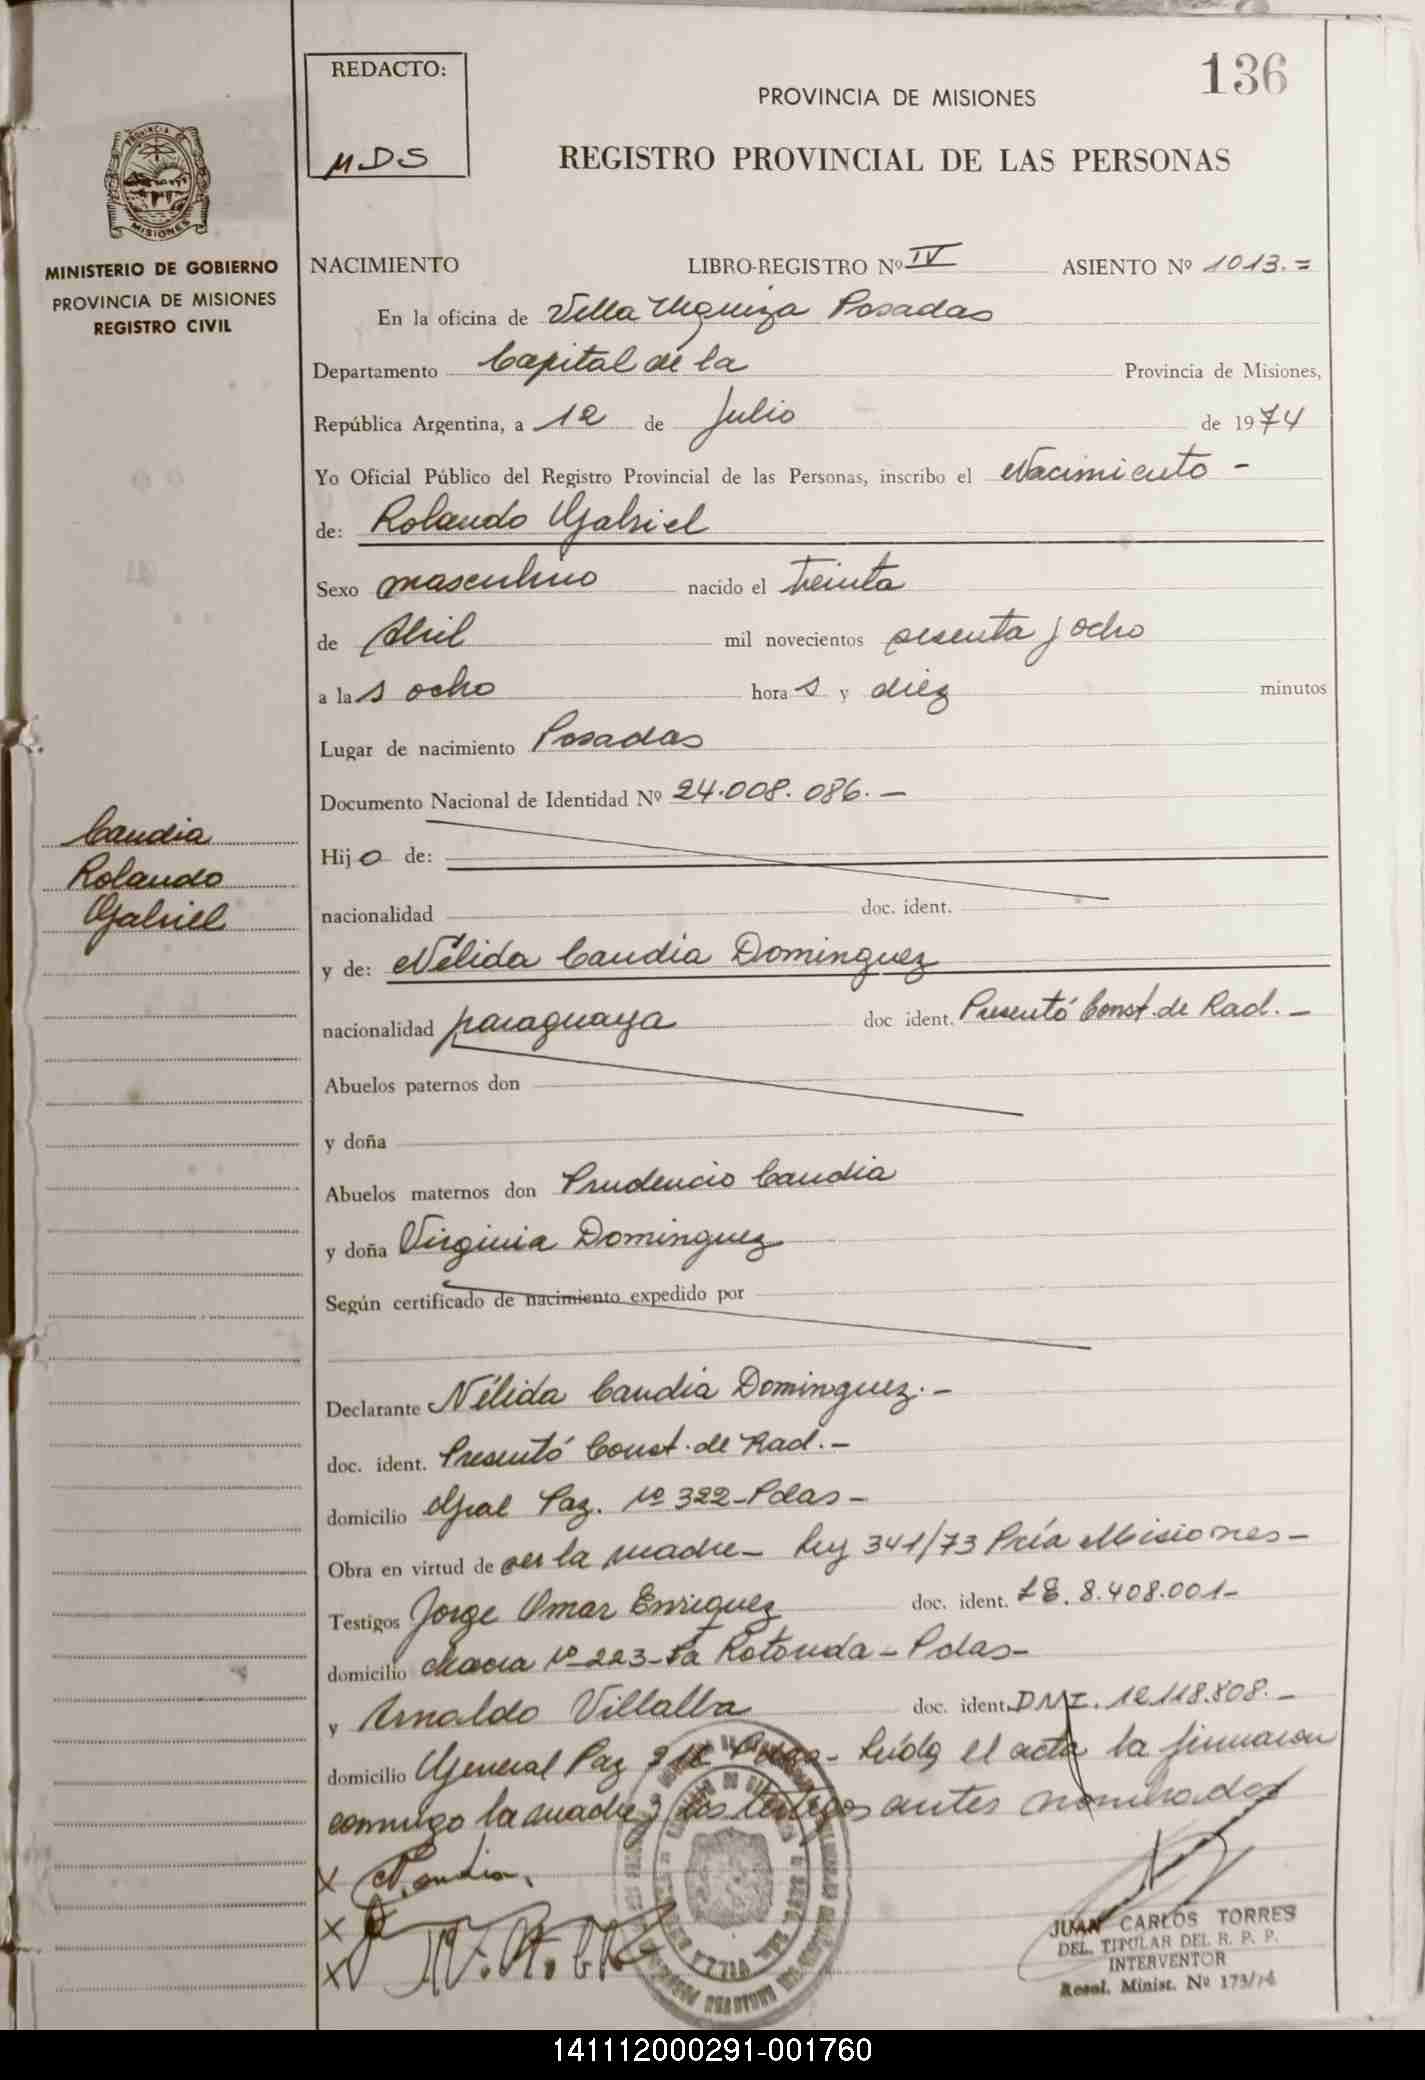 REDACTO:
MDS
136
PROVINCIA DE MISIONES
REGISTRO PROVINCIAL DE LAS PERSONAS
PROVINCIA DE
MISIONES
MINISTERIO DE GOBIERNO
PROVINCIA DE MISIONES
REGISTRO CIVIL
NACIMIENTO LIBRO-REGISTRO Nº IV ASIENTO Nº 1013.=
En la oficina de Villa Urquiza Posadas
Departamento Capital de la Provincia de Misiones,
República Argentina, a 12 de Julio de 1974
Yo Oficial Público del Registro Provincial de las Personas, inscribo el Nacimiento -
de: Rolando Gabriel
Sexo masculino nacido el treinta
de Abril mil novecientos sesenta y ocho
a las ocho horas y diez minutos
Lugar de nacimiento Posadas
Documento Nacional de Identidad Nº 24.008.086.-
Candia
Rolando
Gabriel
Hijo de:
nacionalidad doc. ident.
y de: Nélida Candia Dominguez
nacionalidad paraguaya doc ident. Presentó Const. de Rad.-
Abuelos paternos don
y doña
Abuelos maternos don Prudencio Candia
y doña Virginia Dominguez
Según certificado de nacimiento expedido por
Declarante Nélida Candia Dominguez.-
doc. ident. Presentó Const. de Rad.-
domicilio Gral Paz. Nº 322-Pdas-
Obra en virtud de ser la madre- Ley 341/73 Pcia Misiones-
Testigos Jorge Omar Enriquez doc. ident. LE. 8.408.001-
domicilio Chacra Nº 223-La Rotonda-Pdas-
y Arnaldo Villalba doc. ident. DNI. 12.118.808.-
domicilio General Paz Pdas- Leída el acta la firmaron
conmigo la madre y los testigos antes nombrados
X N. Candia.
X
X
JUAN CARLOS TORRES
DEL. TITULAR DEL R. P. P.
INTERVENTOR
Resol. Minist. Nº 173/74
141112000291-001760